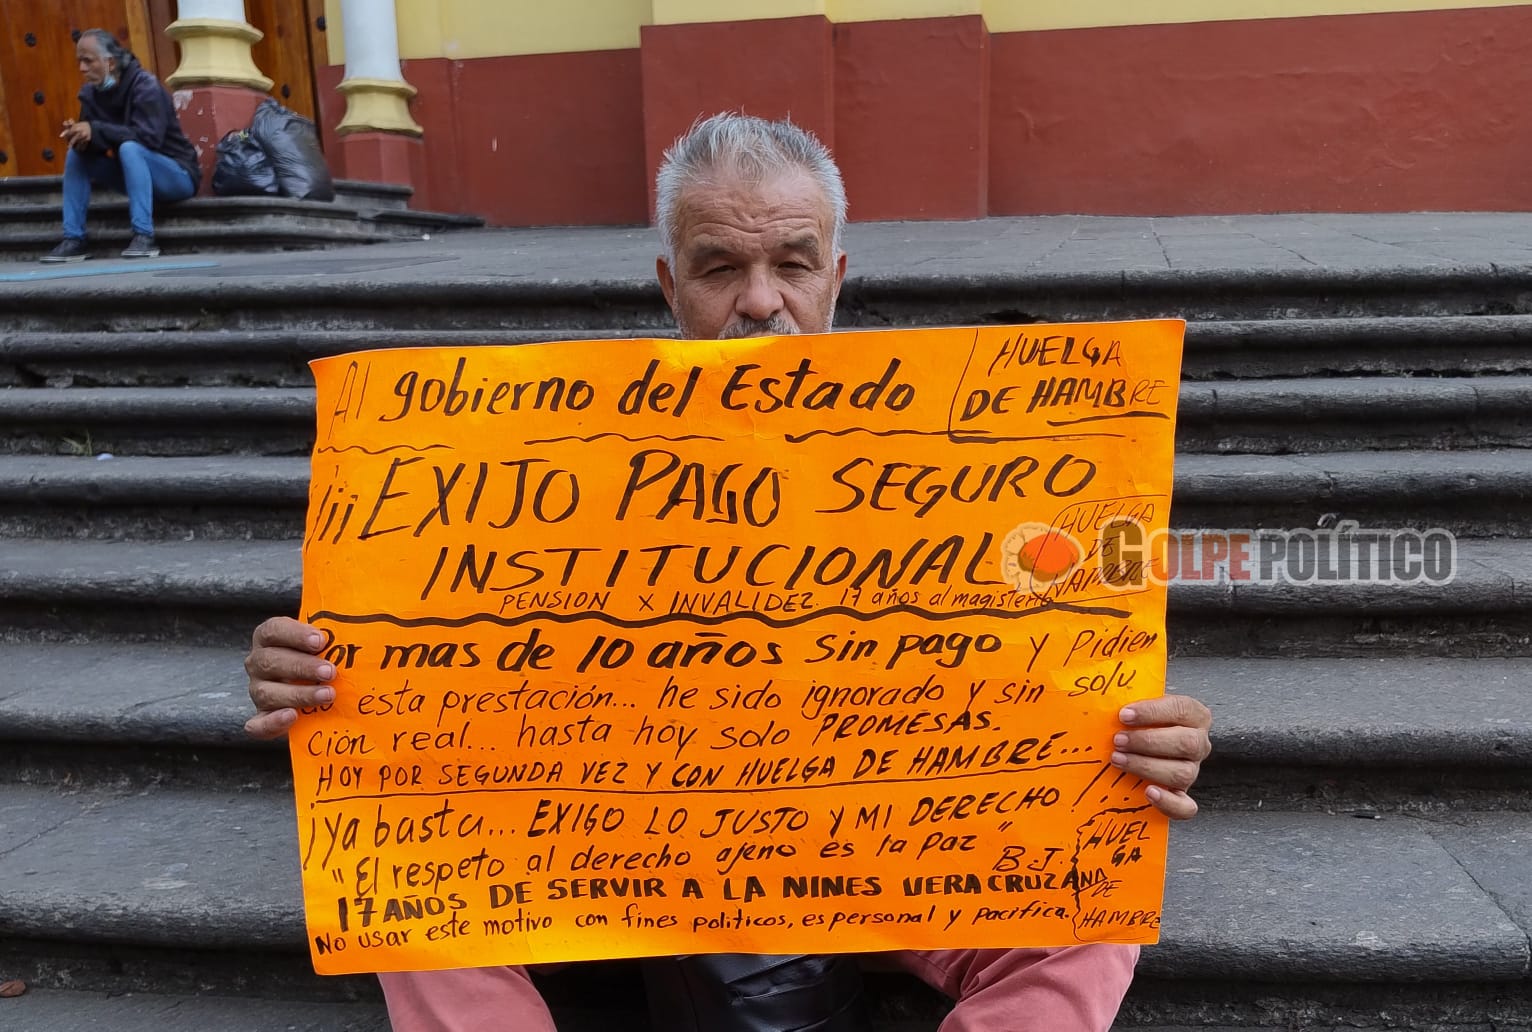 Al gobierno del Estado
HUELGA
DE HAMBRE
¡¡¡EXIJO PAGO SEGURO
INSTITUCIONAL
HUELGA
DE
HAMBRE
GOLPEPOLÍTICO
PENSION X INVALIDEZ. 17 años al magisterio
Por mas de 10 años sin pago y Pidien
do esta prestación... he sido ignorado y sin solu
ción real... hasta hoy solo PROMESAS.
HOY POR SEGUNDA VEZ Y CON HUELGA DE HAMBRE...
¡Ya basta... EXIGO LO JUSTO Y MI DERECHO!!!
"El respeto al derecho ajeno es la paz" B.J.
17 AÑOS DE SERVIR A LA NINES VERACRUZANA
No usar este motivo con fines politicos, es personal y pacifica.
HUEL
GA
DE
HAMBRE